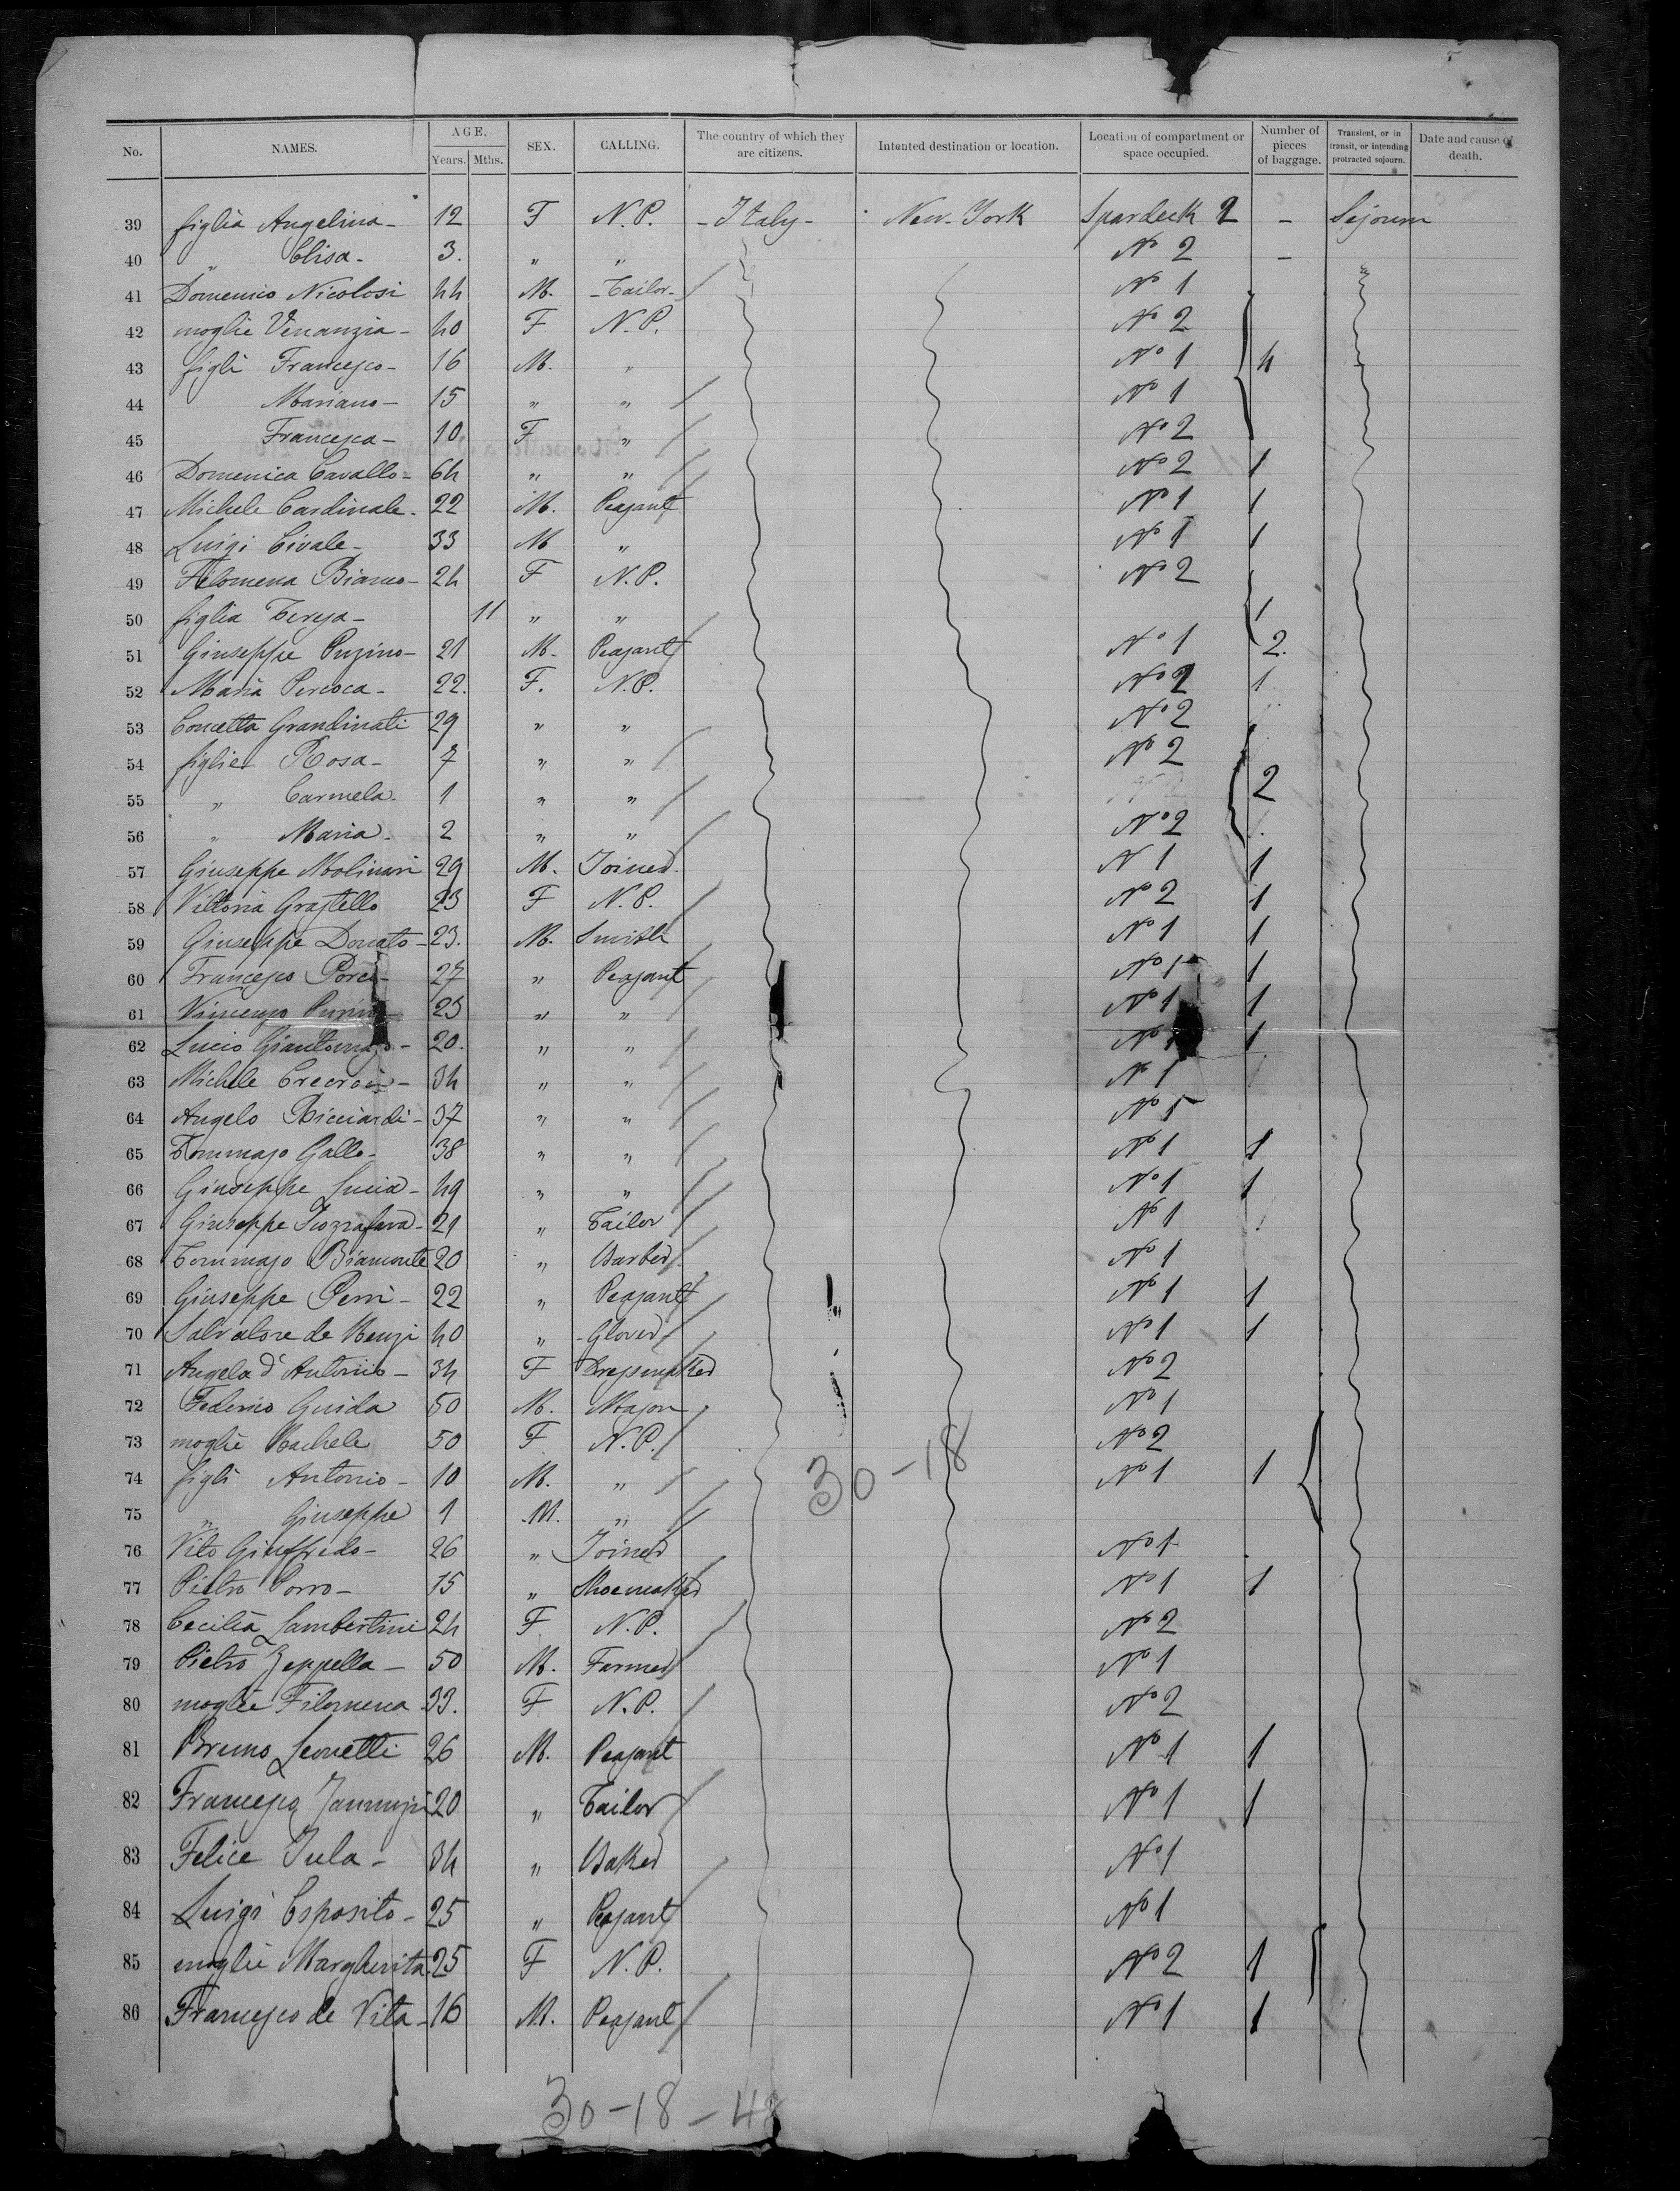 No. NAMES. AGE. Years. Mths. SEX. CALLING. The country of which they are citizens. Intented destination or location. Location of compartment or space occupied. Number of pieces of baggage. Transient, or in transit, or intending protracted sojourn. Date and cause of death.
39 figlia Angelina - 12 F N.P. - Italy - New-York Spardeck 2 - Sejourn
40 " Elisa - 3. " " No 2 -
41 Domenico Nicolosi 44 M. - Tailor - No 1
42 moglie Venanzia - 40 F N.P. No 2
43 figli Francesco - 16 M. " No 1 4
44 Mariano - 15 " " No 1
45 Francesca - 10 F " No 2
46 Domenica Cavallo - 64 " " No 2 1
47 Michele Cardinale - 22 M. Peasant No 1 1
48 Luigi Civale - 33 M " No 1 1
49 Filomena Bianco - 24 F N.P. No 2
50 figlia Teresa - 11 " " 1
51 Giuseppe Puzino - 21 M. Peasant No 1 2.
52 Maria Percoca - 22. F. N.P. No 2 1
53 Concetta Grandinati 29 " " No 2
54 figlie Rosa - 7 " " No 2
55 " Carmela. 1 " " No 2 2
56 " Maria - 2 " " No 2
57 Giuseppe Molinari 29 M. Joiner. N 1 1
58 Vittoria Grastello 23 F N.P. No 2 1
59 Giuseppe Donato - 23. M. Smith No 1 1
60 Francesco Porco - 27 " Peasant No 1 1
61 Vincenzo 23 " " No 1 1
62 Lucio Giantomaso - 20. " " No 1
63 Michele - 34 " " No 1
64 Angelo Ricciardi - 37 " " No 1
65 Tommaso Gallo - 38 " " No 1 1
66 Giuseppe Lucia - 49 " " No 1 1
67 Giuseppe - 21 " Tailor No 1
68 Tommaso Biamonte 20 " Barber No 1
69 Giuseppe Perri - 22 " Peasant No 1 1
70 Salvatore de Renzi 40 " - Glover - No 1 1
71 Angela d'Antonio - 34 F Dressmaker No 2
72 Federico Guida 50 M. Mason No 1
73 moglie Rachele 50 F N.P. No 2
74 figli Antonio - 10 M. " 30-18 No 1 1
75 " Giuseppe 1 M. "
76 Vito Giuffredo - 26 " Joiner No 1
77 Pietro Porro - 15 " Shoemaker No 1 1
78 Cecilia Lambertini 24 F N.P. No 2
79 Pietro Zeppella - 50 M. Farmer No 1
80 moglie Filomena - 33. F N.P. No 2
81 Bruno Leonetti 26 M. Peasant No 1 1
82 Francesco 20 " Tailor No 1 1
83 Felice Iula - 34 " Baker No 1
84 Luigi Esposito - 25 " Peasant No 1
85 moglie Margherita 25 F N.P. No 2 1
86 Francesco de Vita - 16 M. Peasant No 1 1
30-18-48